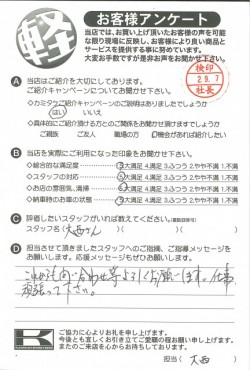 軽
お客様アンケート
当店では、お買い上げ頂いたお客様の声を可能
な限り現場に反映し、お客様により良い商品と
サービスを提供する事に努めています。
大変お手数ですが是非お声をお聞かせ下さい。
検印
29.7
社長
A 当店はご紹介を大切にしております。
ご紹介キャンペーンについてお聞かせ下さい。
・カミタケご紹介キャンペーンのご説明はありましたでしょうか
はい いいえ
・具体的にご紹介頂けるとのご関係をお聞かせ頂けますでしょうか
ご親族 ご友人 職場の方 機会があれば紹介したい
B 当店を実際にご利用になった印象をお聞かせ下さい。
◇総合的な満足度 5大満足 4.満足 3.ふつう 2.やや不満 1.不満
◇スタッフの対応 5大満足 4.満足 3.ふつう 2.やや不満 1.不満
◇お店の雰囲気、清掃 5大満足 4.満足 3.ふつう 2.やや不満 1.不満
◇納車時のお車の状態 5大満足 4.満足 3.ふつう 2.やや不満 1.不満
C 評価したいスタッフがいれば教えてください。
スタッフ名( 大西さん )でもひとり( )
D 担当させて頂きましたスタッフへのご指摘、ご指導メッセージを
お願いします。応援メッセージもぜひ、お願いします。
これからも問い合わせ等よろしくお願いします。仕事
頑張って下さい。
ご協力に心よりお礼を申し上げます。
今後とも宜しくお引き立てご愛顧の程お願い申し上げます。
またのご来店を心からお待ちしております。
担当( 大西 )